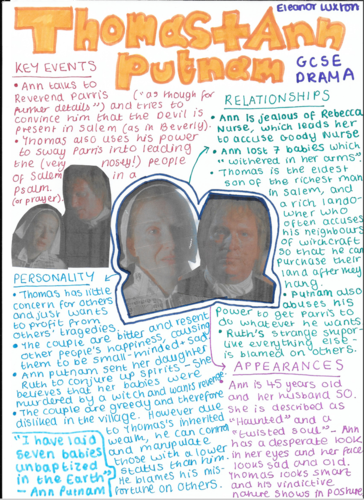 Eleanor Luxton
Thomas + Ann
Putnam
GCSE
DRAMA
KEY EVENTS
• Ann talks to
Reverend Parris ("as though for
further details") and tries to
convince him that the Devil is
present in Salem (as in Beverly).
• Thomas also uses his power
to sway Parris into leading
the (very nosy!) people
of Salem in a
psalm.
(or prayer).
RELATIONSHIPS
• Ann is jealous of Rebecca
Nurse, which leads her
to accuse Goody Nurse
• Ann lost 7 babies which
"withered in her arms"
• Thomas is the eldest
son of the richest man
in Salem, and
a rich lando-
wner who
often accuses
his neighbours
of witchcraft
so that he can
purchase their
land after they
hang.
• Putnam also
abuses his
power to get Parris to
do whatever he wants
• Ruth's strange stupor
like everything else -
is blamed on others.
PERSONALITY
• Thomas has little
concern for others
and just wants
to profit from
others' tragedies.
• The couple are bitter and resent
other people's happiness, causing
them to be small-minded + sad
• Ann Putnam sent her daughter
Ruth to conjure up spirits - she
believes that her babies were
murdered by a witch and wants revenge
• The couple are greedy and therefore
disliked in the village. However due
to Thomas's inherited
wealth, he can command
and manipulate
those with a lower
status than him.
He blames his mis-
fortune on others.
"I have laid
seven babies
unbaptized
in the Earth"
- Ann Putnam
APPEARANCES
Ann is 45 years old
and her husband 50.
She is described as
"Haunted" and a
"twisted soul" - Ann
has a desperate look
in her eyes and her face
looks sad and old.
Thomas looks smart
and his vindictive
nature shows in Posture